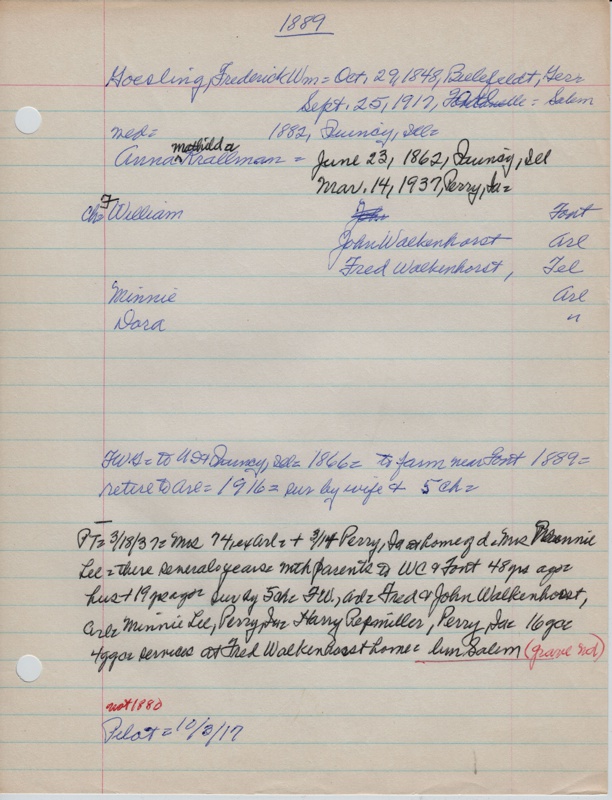 1889
Goesling, Frederick Wm = Oct. 29, 1848, Bielefeldt, Ger=
Sept. 25, 1917, Fontanelle = Salem
med= 1882, Quincy, Ill=
Anna Mathilda Krallman = June 23, 1862, Quincy, Ill
Mar. 14, 1937, Perry, Ia=
Ch= F William Font
John Walkenhorst Arl
Fred Walkenhorst, Tel
Minnie Arl
Dora "
FWG= to US Quincy, Ill= 1866= to farm near Font 1889=
retire to Arl= 1916= sur by wife & 5 ch=
FT= 3/18/37= Mrs 74, ex Arl= + 3/14 Perry, Ia at home of d= Mrs Minnie
Lee= there several years= with parents to WC & Font 48 yrs ago=
hus + 19 yrs ago= sur by 5 ch= F.W., Arl= Fred & John Walkenhorst,
Arl= Minnie Lee, Perry, Ia= Harry Pepmiller, Perry, Ia= 16 gc=
4 ggc= services at Fred Walkenhorst home= bur Salem (grave nd)
not 1880
Pilot= 10/3/17